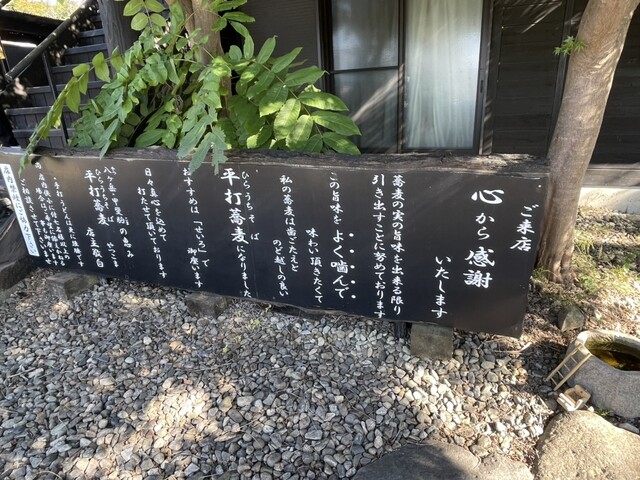 ご来店
心から感謝
いたします
蕎麦の実の旨味を出来る限り
引き出すことに努めております
この旨味を よく噛んで
味わい頂きたくて
私の蕎麦は歯ごたえと
のど越しの良い
ひらうちそば
平打蕎麦になりました
おすすめは「せいろ」で
御座います
日々真心を込めて
打たせて頂いております
八ヶ岳・甲斐駒の恵み
ひらうちそば やつこま
平打蕎麦
店主敬白